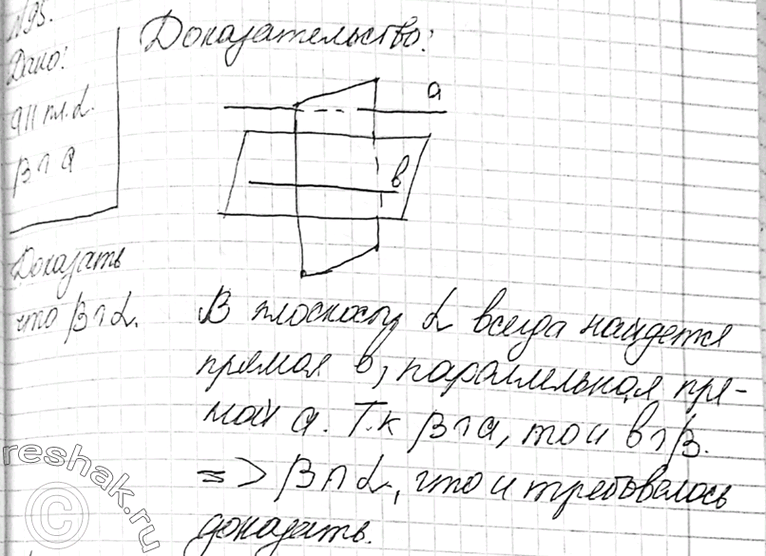 N95.
Дано:
a || пл. α.
β ∩ a
Доказать
что β ∩ α.
Доказательство:
a
в
В плоскости α всегда найдется
прямая в, параллельная пря-
мой a. Т.к β ∩ a, то и в ∩ β.
=> β ∩ α, что и требовалось
доказать.
reshak.ru